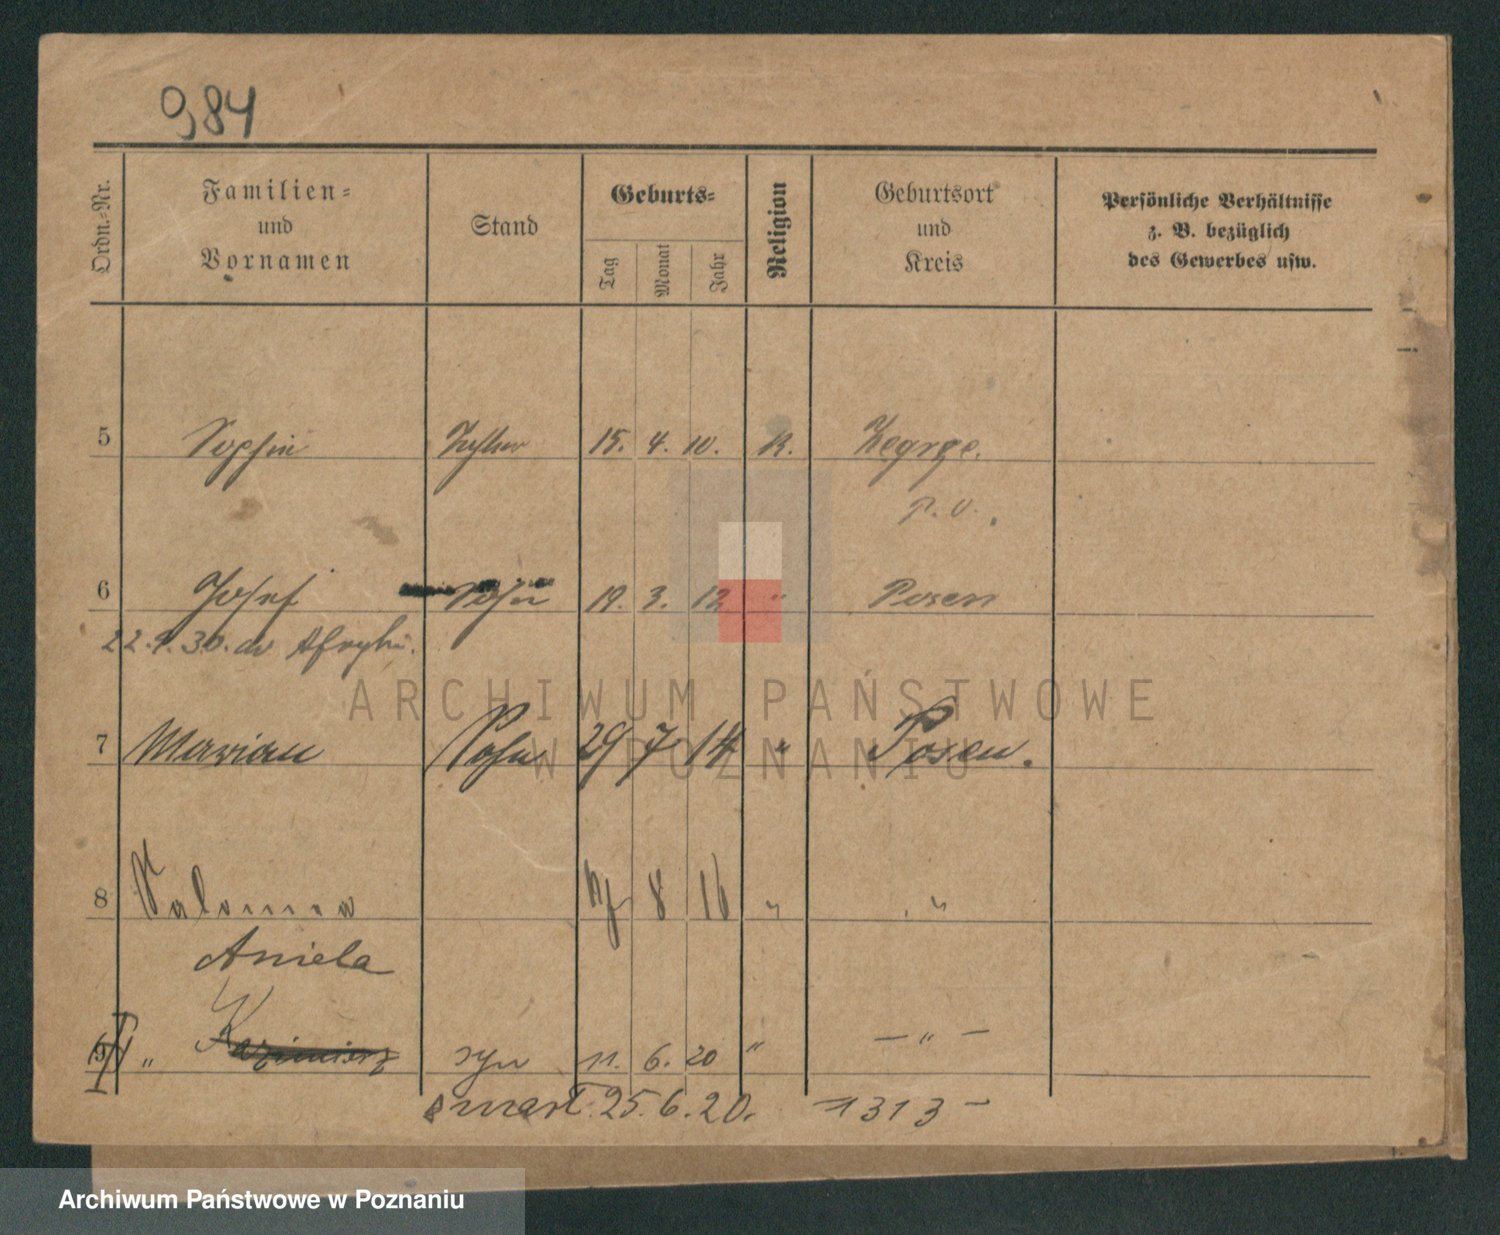 984
Ordn.-Nr.
Familien-
und
Vornamen
Stand
Geburts-
Tag
Monat
Jahr
Religion
Geburtsort
und
Kreis
Persönliche Verhältnisse
z. B. bezüglich
des Gewerbes usw.
5 Sophie Tochter 15. 4. 10. K. Zegrze.
P. O.
6 Josef Sohn 19. 3. 12 " Posen
22. 9. 30. do
7 Marian Sohn 29 7 14 " Posen.
8 Salomea 8 16 " "
Aniela
9 " Kazimierz syn 11. 6. 20 " — " —
zmarł. 25. 6. 20. 1313 —
ARCHIWUM PAŃSTWOWE
W POZNANIU
Archiwum Państwowe w Poznaniu